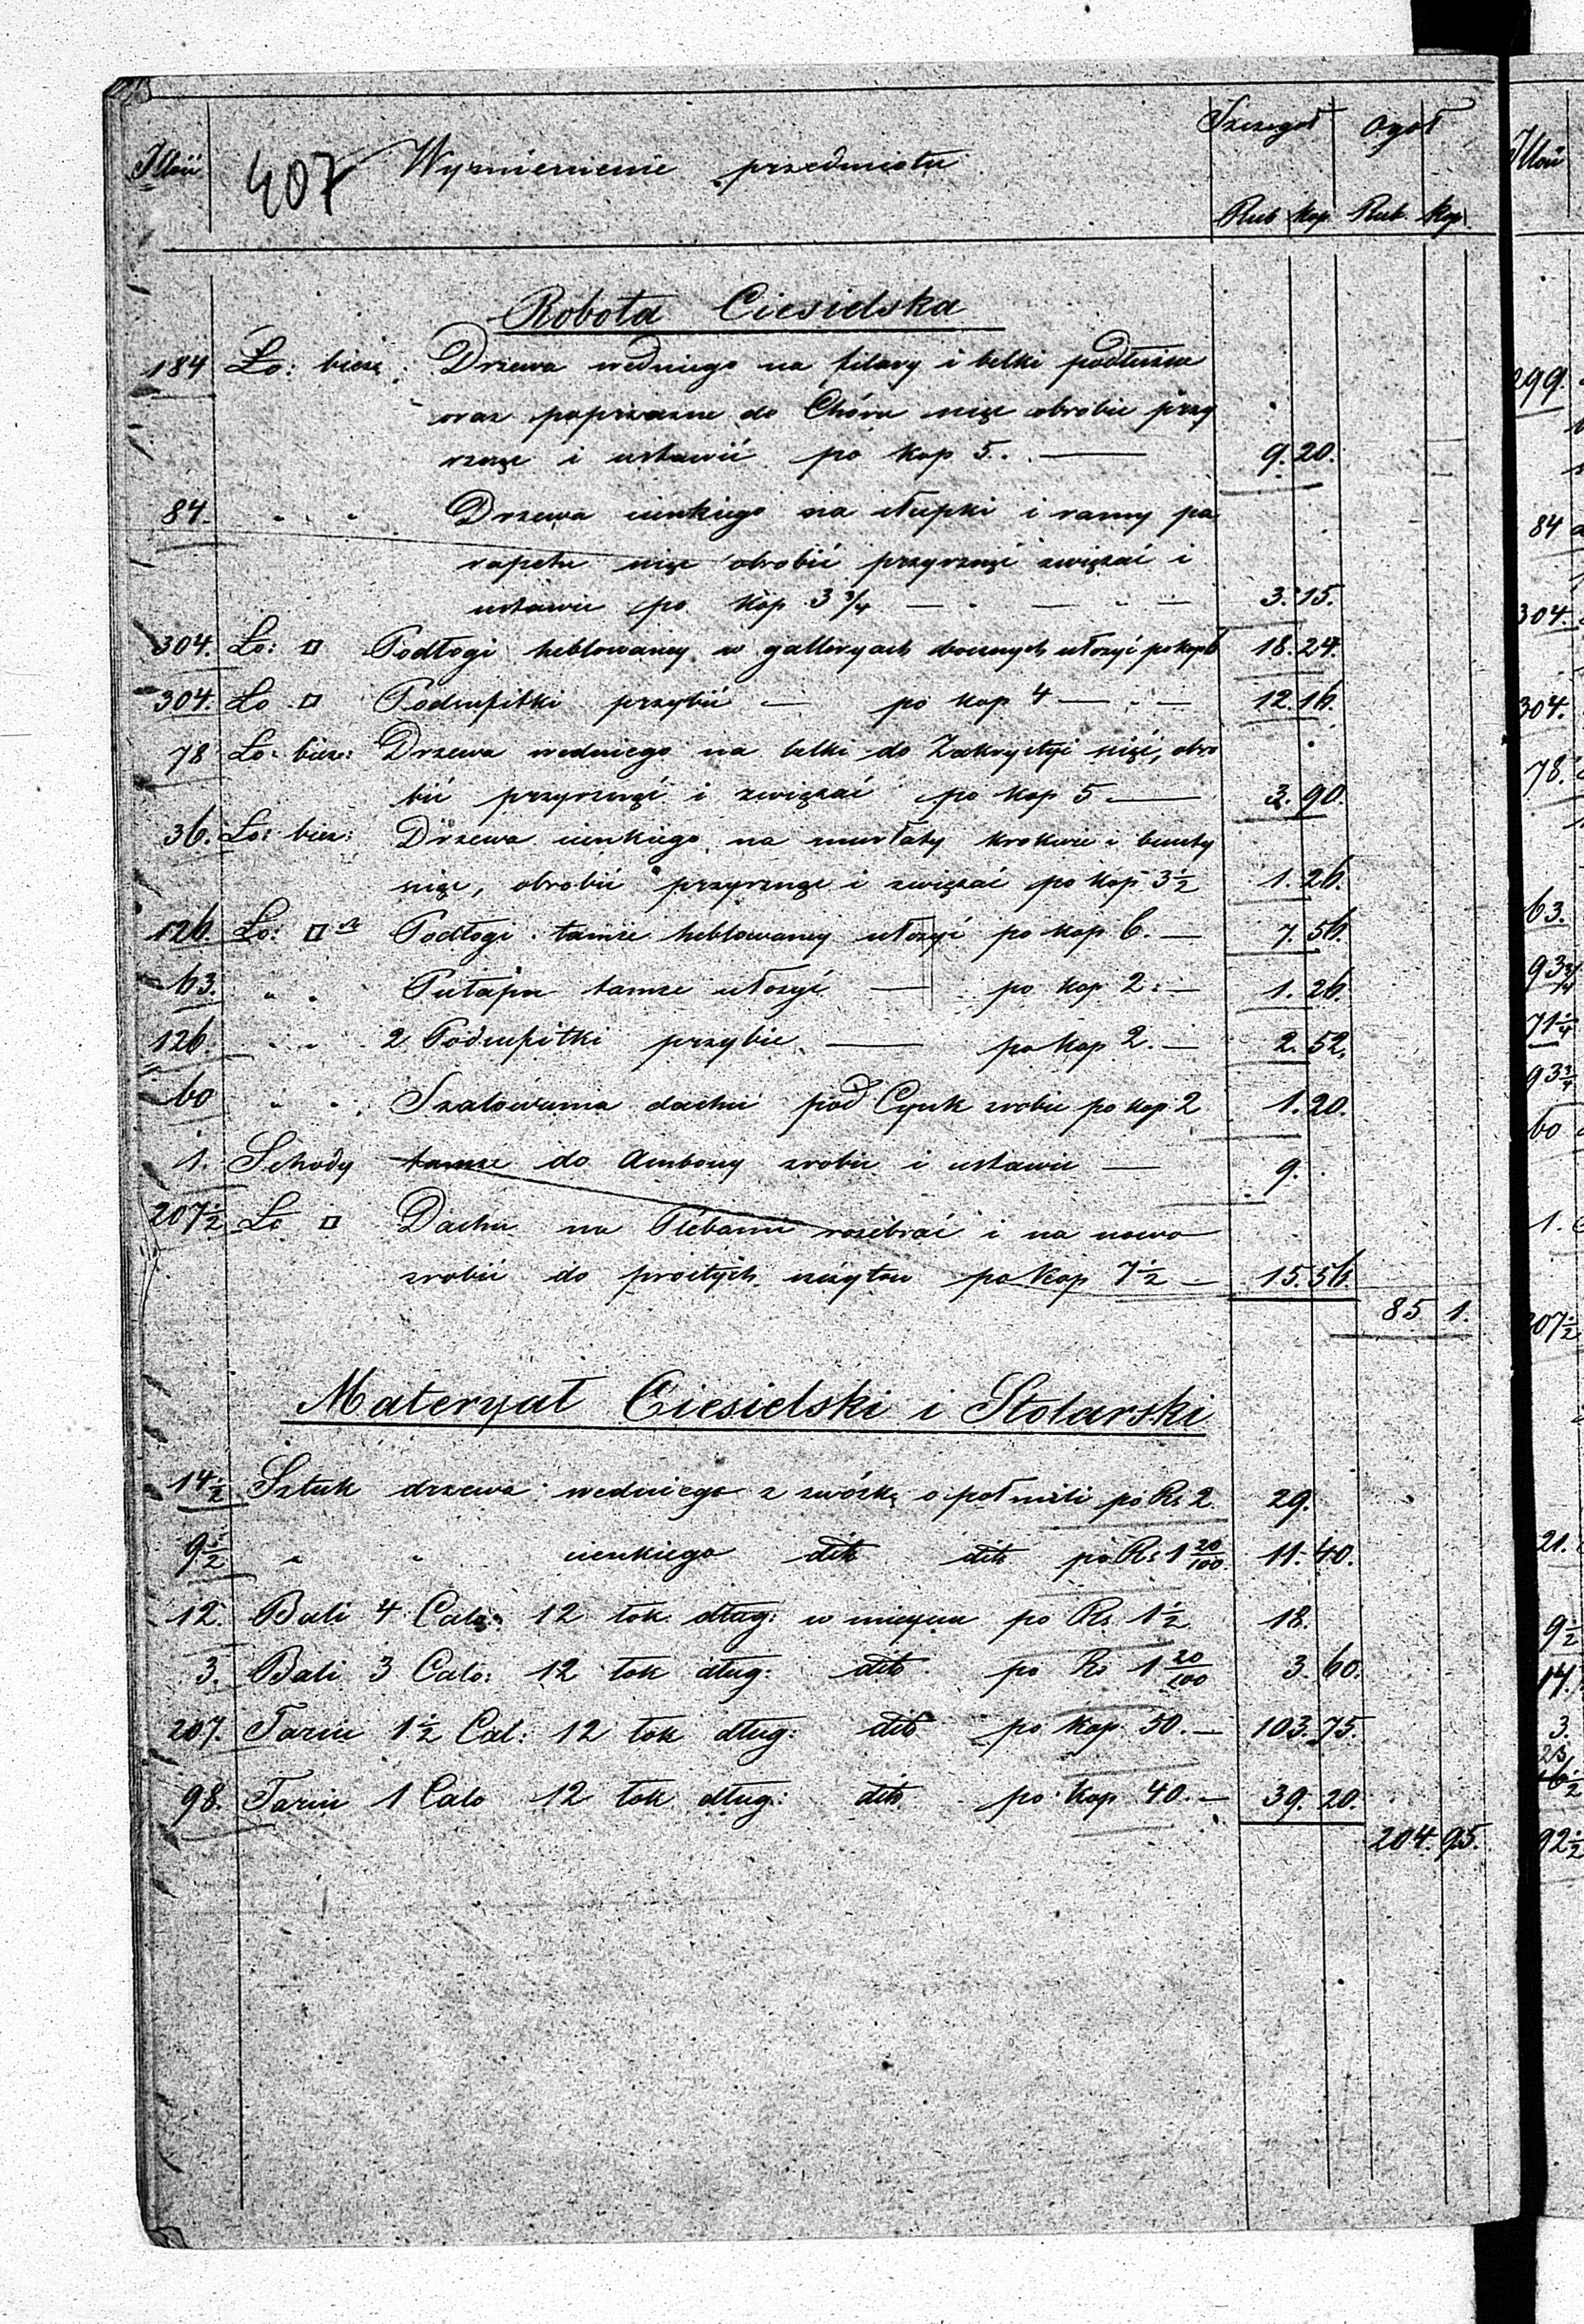 Szczegół Ogół
Ilość 407 Wymienienie przedmiotu
Rub Kop. Rub. Kop.
Robota Ciesielska
184 Ło: bież: Drzewa średniego na filary i belki podłużne
oraz poprzeczne do Chóru rżąc obrobić przy
rznąć i ustawić po kop 5. — 9. 20.
84. " " Drzewa cienkiego na słupki i ramy pa
rapetu rżąc obrobić przyrznąć związać i
ustawić po kop 3 3/4 — 3. 15.
304. Ło: □ Podłogi heblowanej w galleryach bocznych ułożyć po kop 6 18. 24.
304. Ło □ Podsufitki przybić — po kop 4 — 12. 16.
78 Ło: bież: Drzewa średniego na belki do Zakrystyi rżąć, obro
bić przyrznąć i związać po kop 5 — 3. 90.
36. Ło: bież: Drzewa cienkiego na murłaty krokwie i bunty
rżąc, obrobić przyrznąć i związać po kop 3 1/2 1. 26.
126. Ło: □ Podłogi tamże heblowanej ułożyć po kop 6. — 7. 56.
63. " " Pułapu tamże ułożyć — po kop 2. — 1. 26.
126. " " 2 Podsufitki przybić — po kop 2. — 2. 52.
60 " " Szalowania dachu pod Cynk zrobić po kop 2 1. 20.
1. Schody tamże do Ambony zrobić i ustawić — 9.
207 1/2 Ło □ Dachu na Plebanii rozebrać i na nowo
zrobić do prostych użytku po Kop 7 1/2 — 15. 56.
85 1.
Materyał Ciesielski i Stolarski
14 1/2 Sztuk drzewa średniego z zwózką o pół mili po Rs 2. 29.
9 1/2 " " cienkiego dito dito po Rs 1 20/100. 11. 40.
12. Bali 4 Calo: 12 łok dług: w miejscu po Rs. 1 1/2 18.
3. Bali 3 Calo: 12 łok dług: dito po Rs 1 20/100 3. 60.
207. Tarcic 1 1/2 Cal: 12 łok dług: dito po Kop. 50. — 103. 75.
98. Tarcic 1 Calo 12 łok dług: dito po Kop 40. — 39. 20.
204. 95.
Ilość
299.
84
304.
304.
78.
63.
93 3/4
71 1/4
93 3/4
60
1.
207 1/2
21.
9 1/2
3.
92 1/2